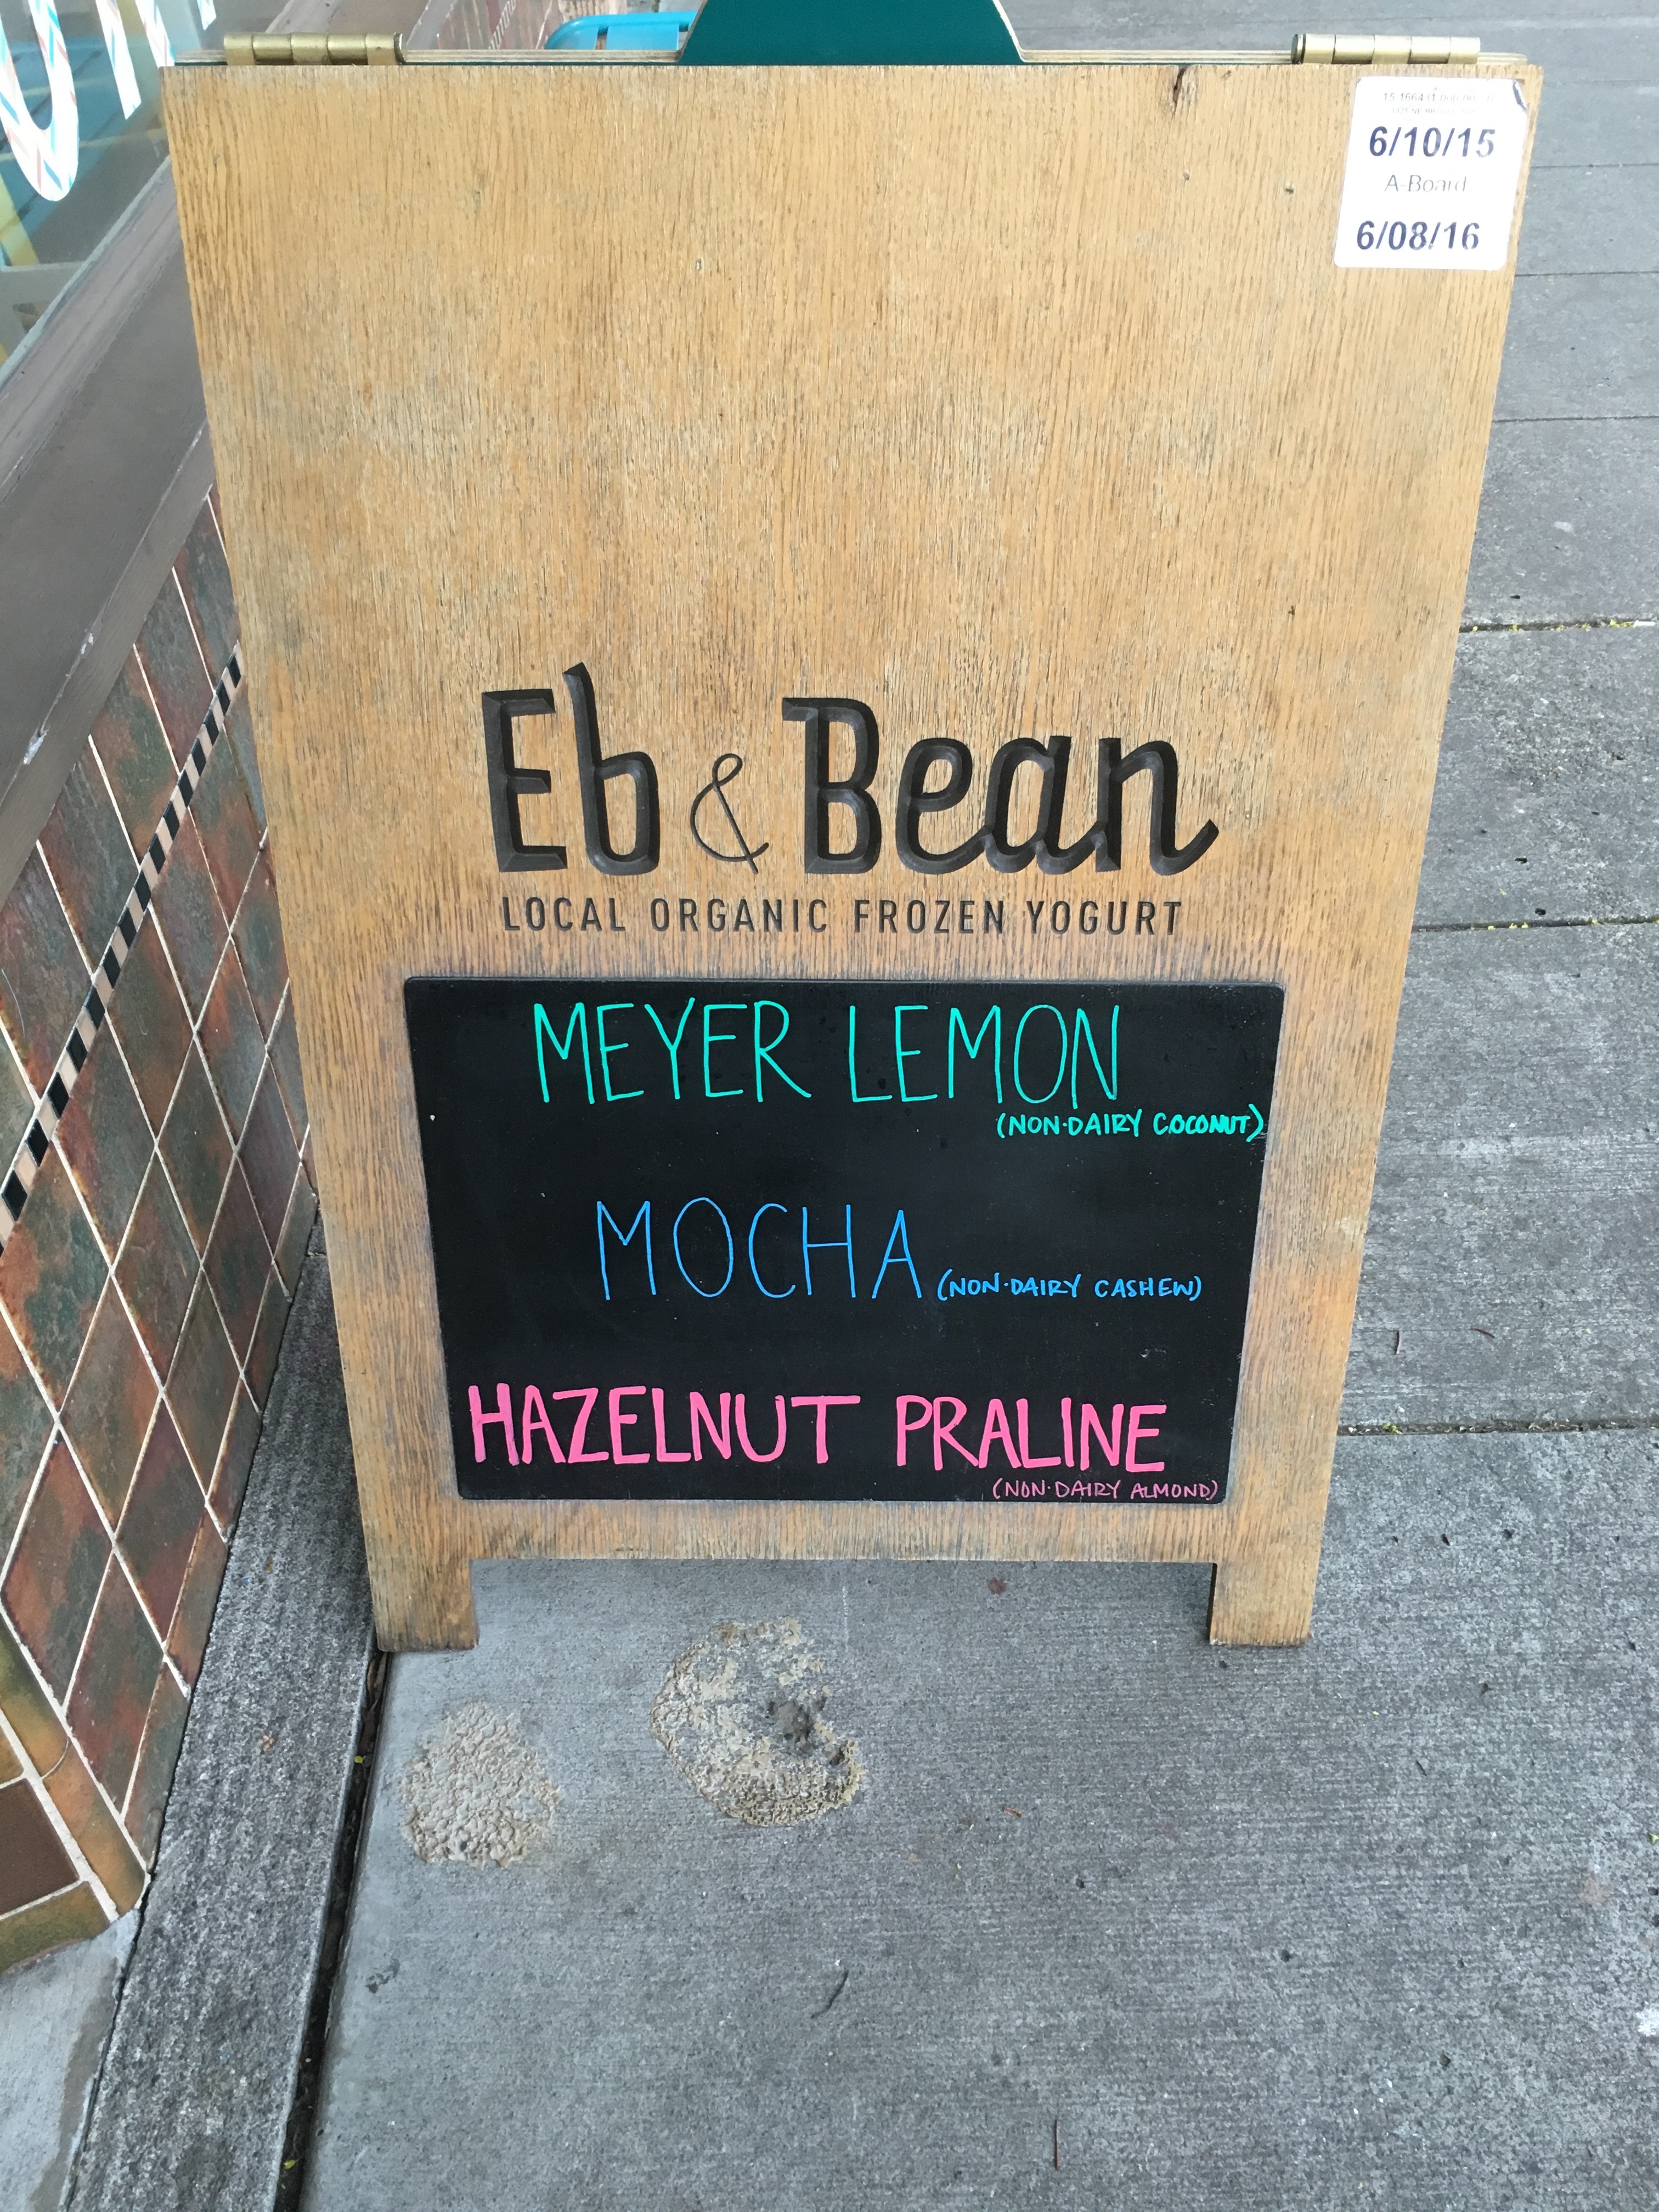 6/10/15
A-Board
6/08/16
Eb & Bean
LOCAL ORGANIC FROZEN YOGURT
MEYER LEMON
(NON-DAIRY COCONUT)
MOCHA (NON-DAIRY CASHEW)
HAZELNUT PRALINE
(NON-DAIRY ALMOND)